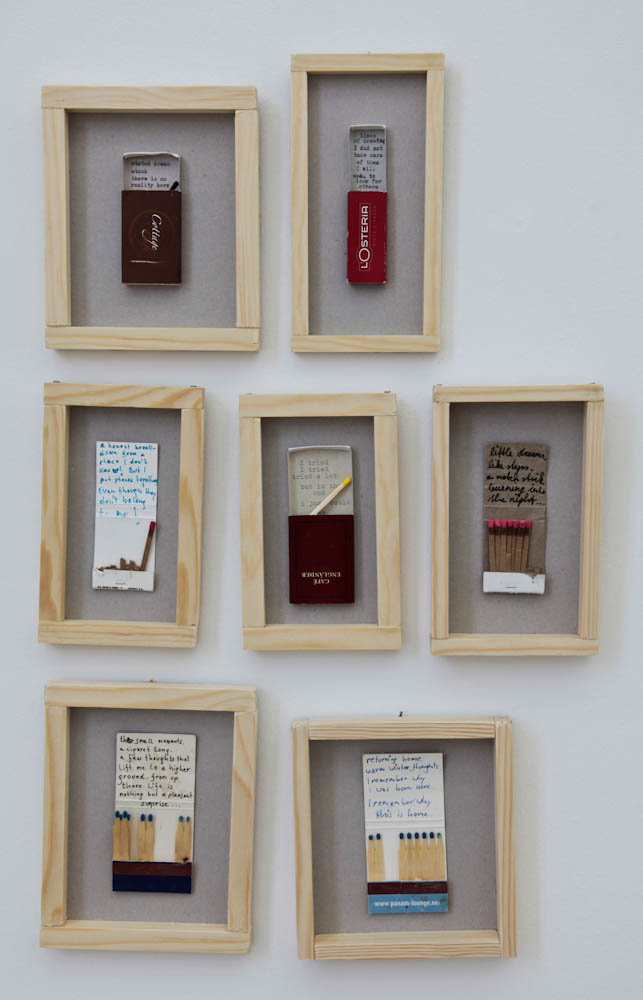 stated dreams
stuck
there is no
reality here
Cottage
lines
of drawing
I did not
take care
of them
I will
need to
look for
others
L'OSTERIA
a honest break-
down from a
place I don't
but I
put pieces together
Even though they
don't belong
to me!
I tried
I tried
tried a lot
but in the
end
i just could
CAFÉ
ENGLÄNDER
little dreams
like steps.
a match stick
burning into
the night...
the small moments.
a cigaret long.
a few thoughts that
lift me to a higher
ground. from up
there life is
nothing but a pleasant
surprise...
returning home
warm winter thoughts
I remember why
I was born here.
I remember why
this is home.
www.panam-lounge.net